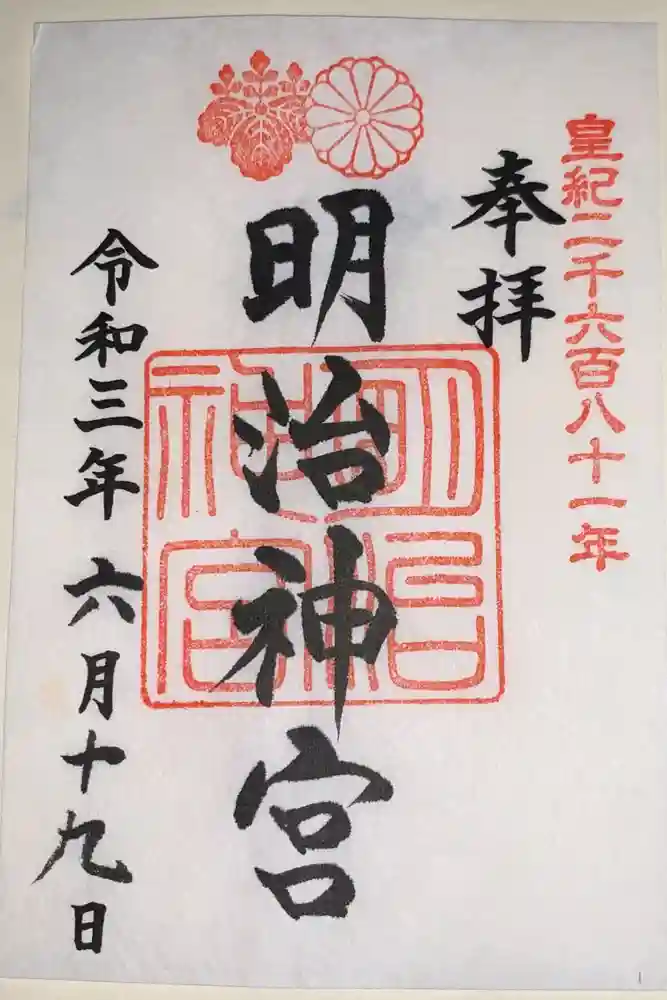 皇紀二千六百八十一年
奉拝
明治神宮
明治神宮
令和三年六月十九日